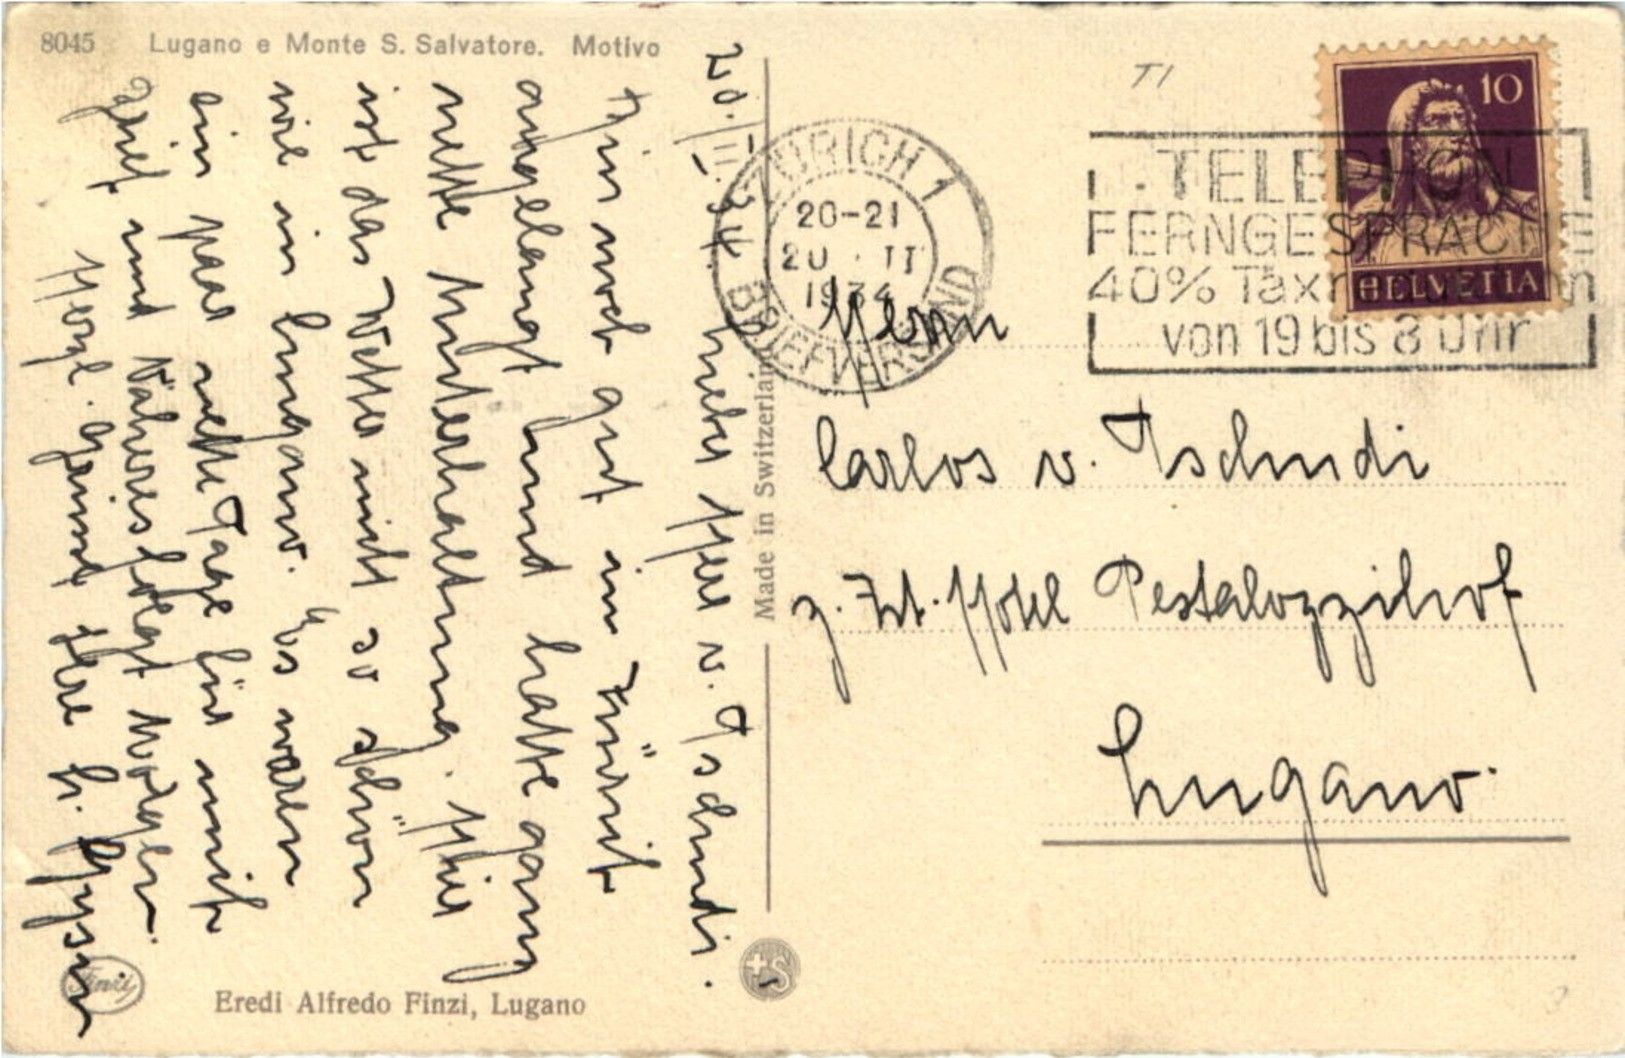 8045 Lugano e Monte S. Salvatore. Motivo
20. III. 34.
Lieber Herr v. Tschudi.
Bin noch gut in Zürich
angelangt und hatte ganz
nette Unterhaltung. Hier
ist das Wetter nicht so schön
wie in Lugano. Es waren
ein paar nette Tage für mich
und Näheres folgt morgen.
Herzl. grüsst Ihre
Made in Switzerland
Finzi
Eredi Alfredo Finzi, Lugano
T1
ZÜRICH 1
20-21
1934
BRIEFVERSAND
TELEPHON
FERNGESPRÄCHE
40% Taxreduktion
von 19 bis 8 Uhr
10
HELVETIA
Herrn
Carlos v. Tschudi
z. Zt. Hotel Pestalozzihof
Lugano.